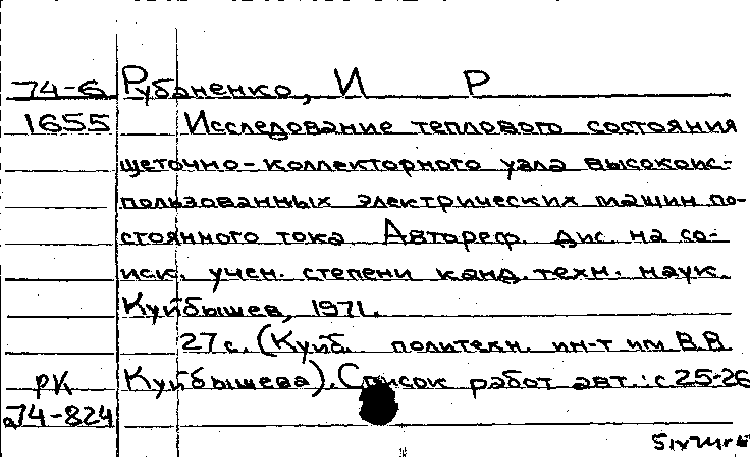 74-6 Рубаненко, И Р
1655 Исследование теплового состояния
щеточно-коллекторного узла высокоис-
пользованных электрических машин по-
стоянного тока Автореф. дис. на со-
иск. учен. степени канд. техн. наук.
Куйбышев, 1971.
27 с. (Куйб. политехн. ин-т им В.В.
РК Куйбышева). Список работ авт.: с 25-26
а74-824